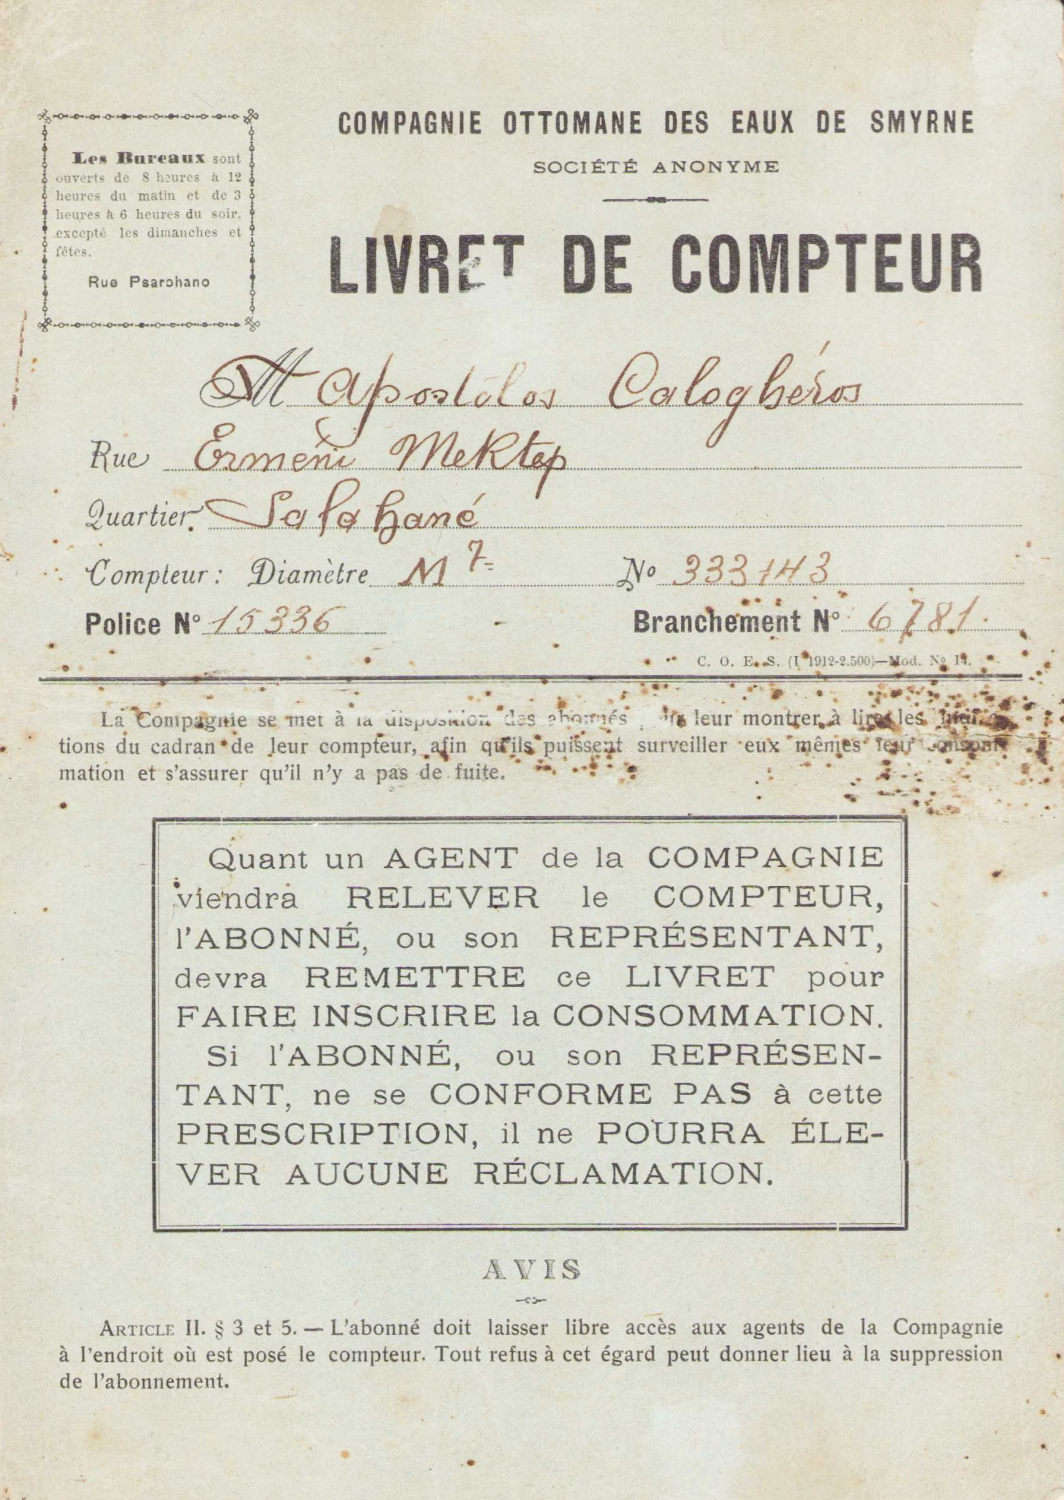 Les Bureaux sont
ouverts de 8 heures à 12
heures du matin et de 3
heures à 6 heures du soir,
excepté les dimanches et
fêtes.
Rue Psarohano
COMPAGNIE OTTOMANE DES EAUX DE SMYRNE
SOCIÉTÉ ANONYME
LIVRET DE COMPTEUR
M Apostolos Caloghéros
Rue Ermeni Mektep
Quartier. Salahané
Compteur: Diamètre M 7= No 333143
Police No 15336 Branchement No 6781.
C. O. E. S. (I 1912-2.500)—Mod. No 14.
La Compagnie se met à la disposition des abonnés leur montrer à lire les
tions du cadran de leur compteur, afin qu'ils puissent surveiller eux mêmes leur consom-
mation et s'assurer qu'il n'y a pas de fuite.
Quant un AGENT de la COMPAGNIE
viendra RELEVER le COMPTEUR,
l'ABONNÉ, ou son REPRÉSENTANT,
devra REMETTRE ce LIVRET pour
FAIRE INSCRIRE la CONSOMMATION.
Si l'ABONNÉ, ou son REPRÉSEN-
TANT, ne se CONFORME PAS à cette
PRESCRIPTION, il ne POURRA ÉLE-
VER AUCUNE RÉCLAMATION.
AVIS
ARTICLE II. § 3 et 5. — L'abonné doit laisser libre accès aux agents de la Compagnie
à l'endroit où est posé le compteur. Tout refus à cet égard peut donner lieu à la suppression
de l'abonnement.